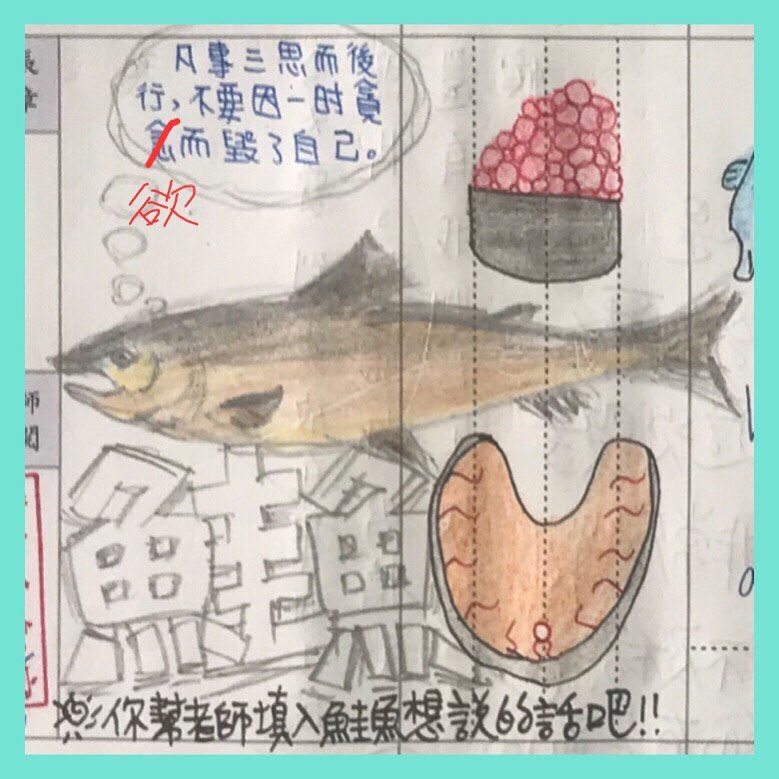 凡事三思而後
行,不要因一时貪
念而毀了自己。
欲
鮭魚
※你幫老師填入鮭魚想說的話吧!!